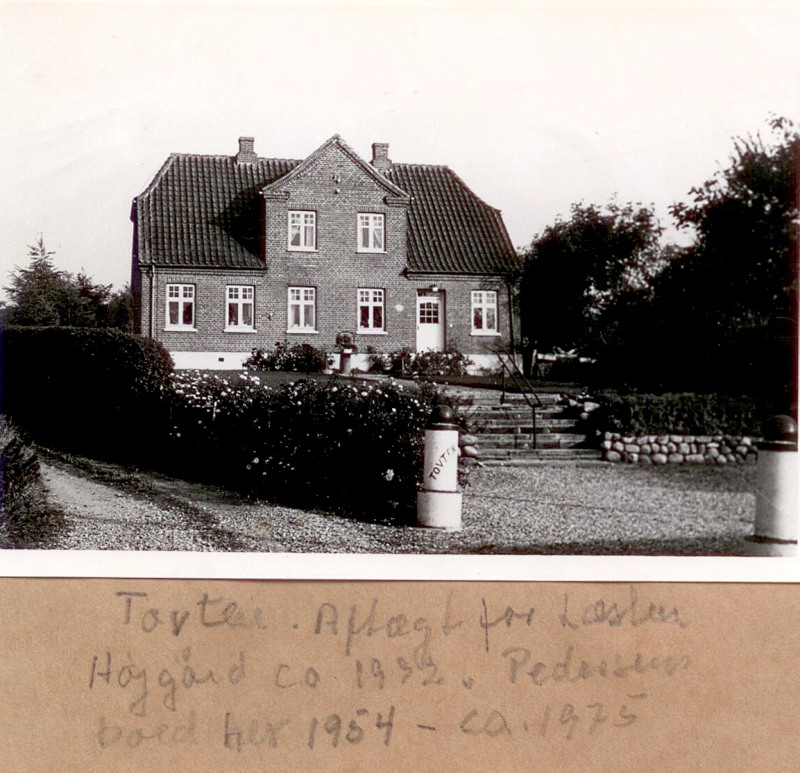 TOVTEN
Tovten . Aftægt for Læsten
Højgård ca 1932. Pedersens
boed her 1954 - ca. 1975